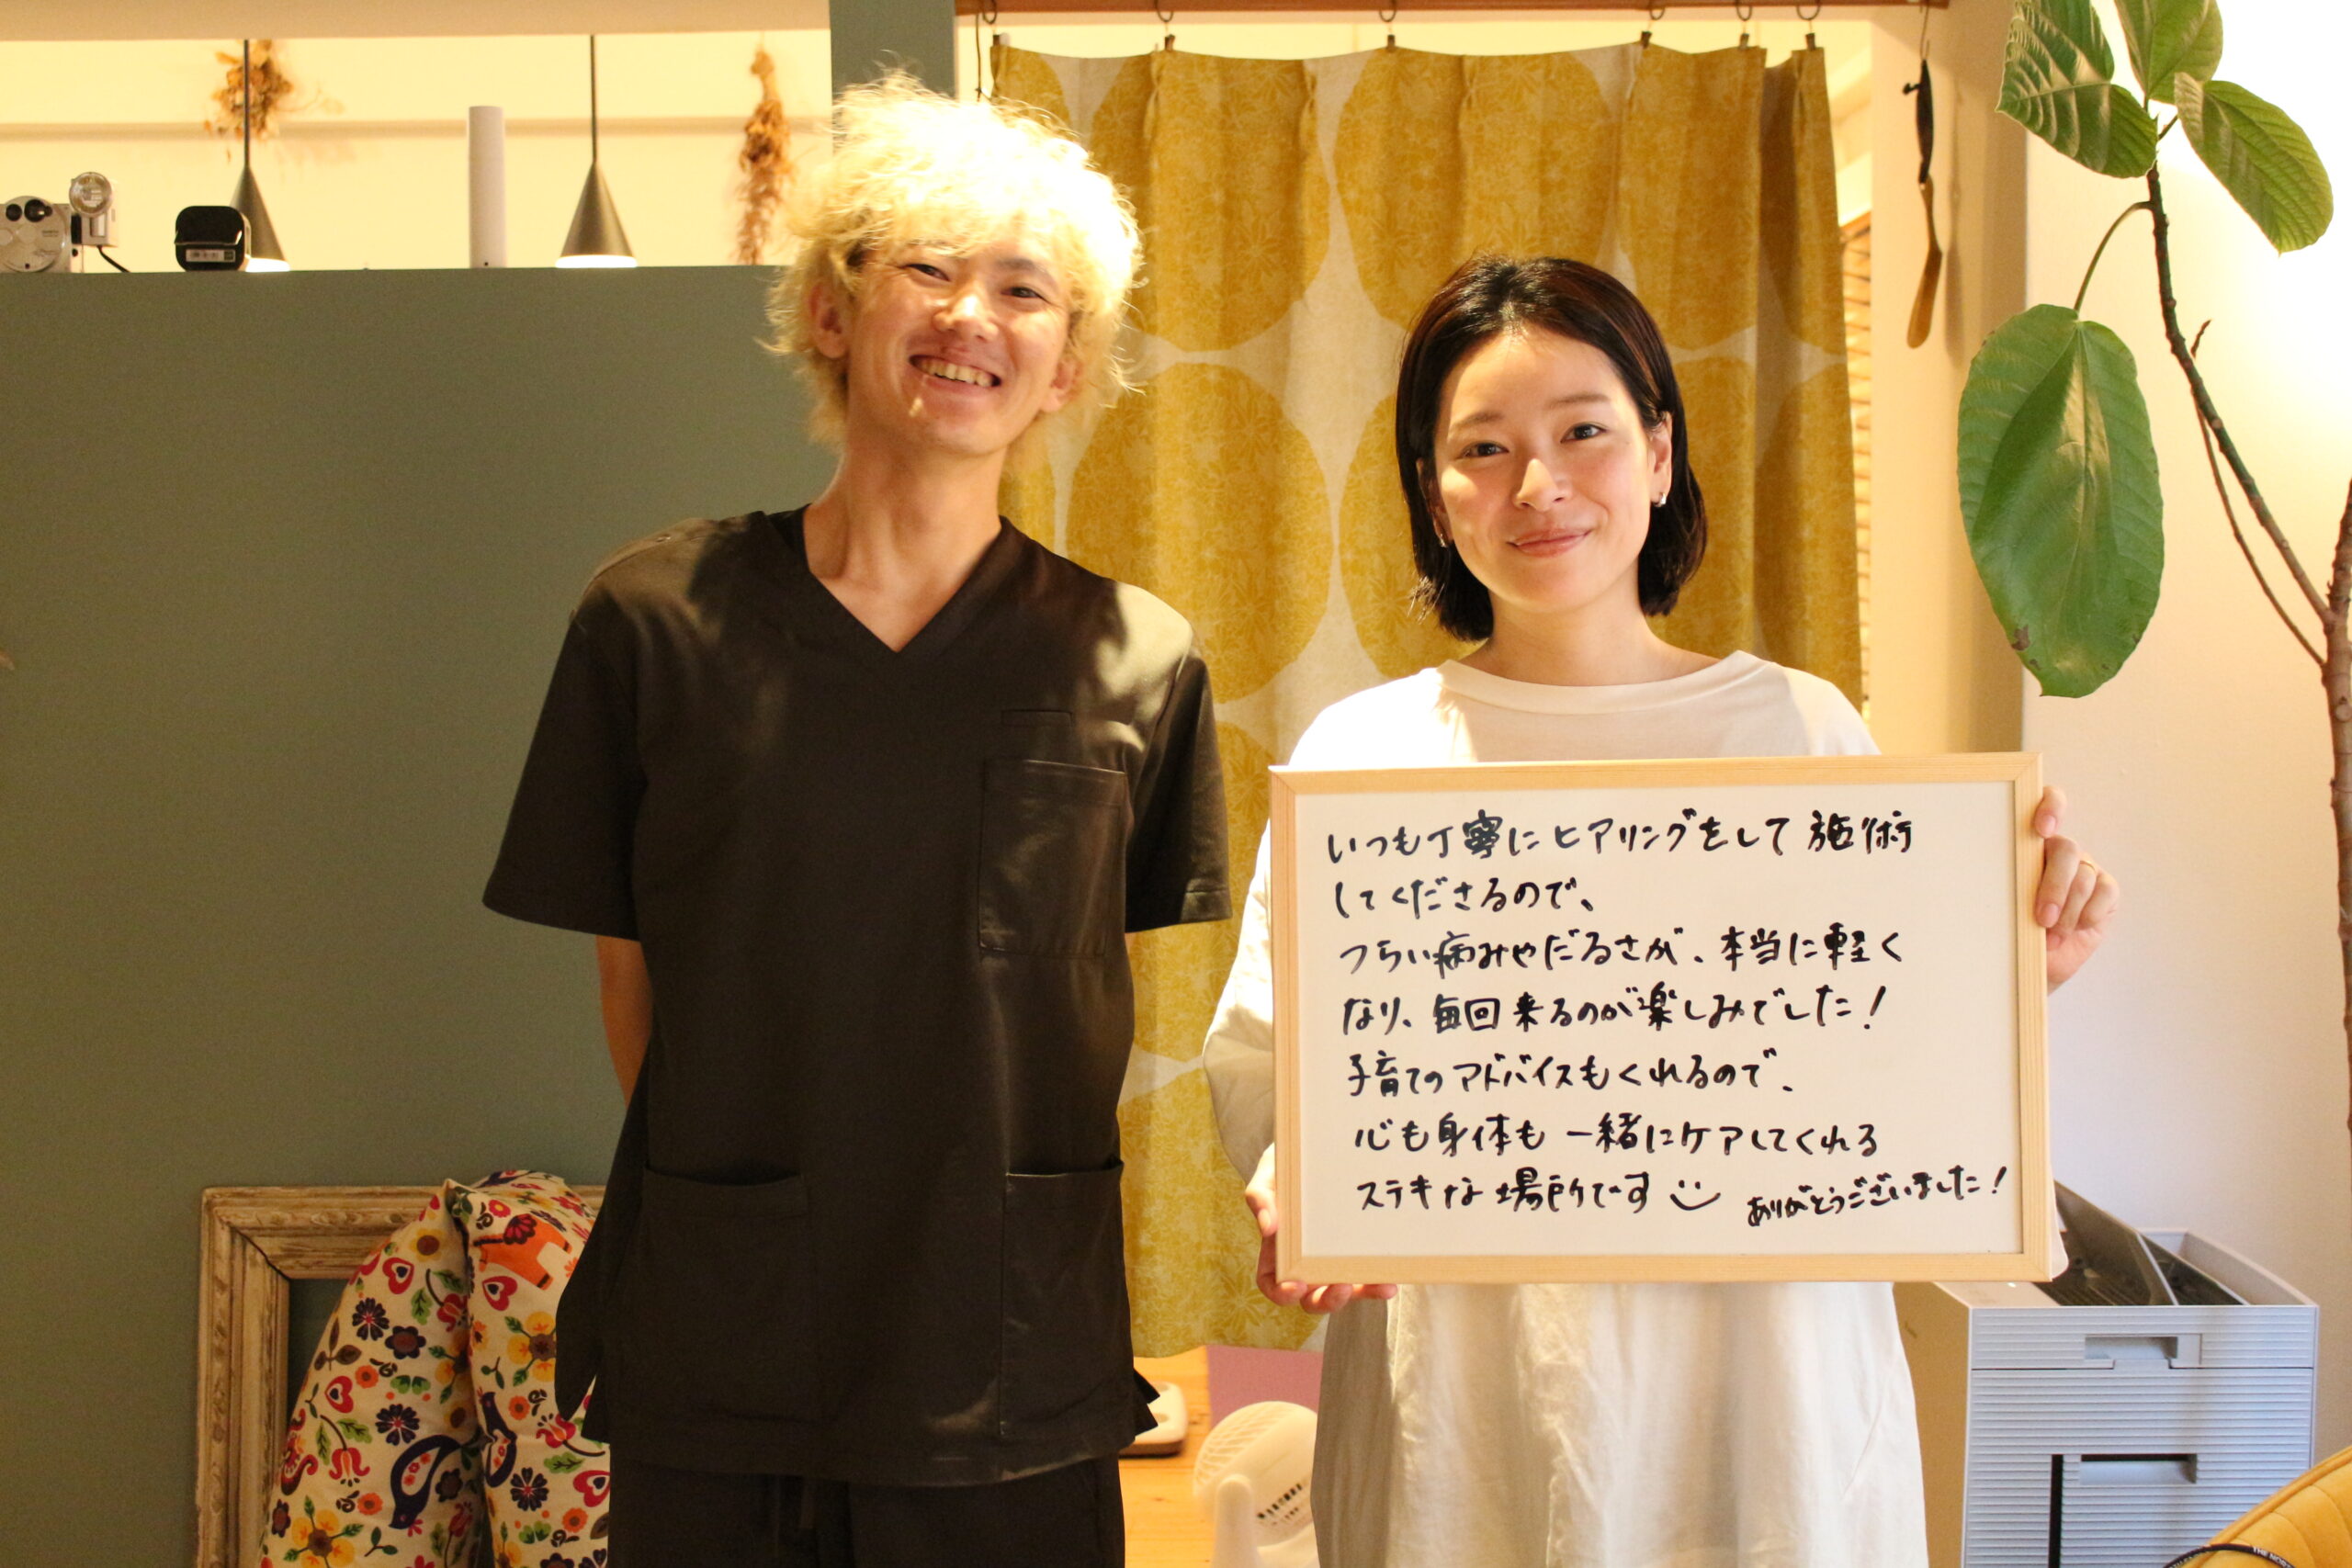 いつも丁寧にヒアリングをして施術
してくださるので、
つらい痛みやだるさが、本当に軽く
なり、毎回来るのが楽しみでした！
子育てのアドバイスもくれるので、
心も身体も一緒にケアしてくれる
ステキな場所です
ありがとうございました！